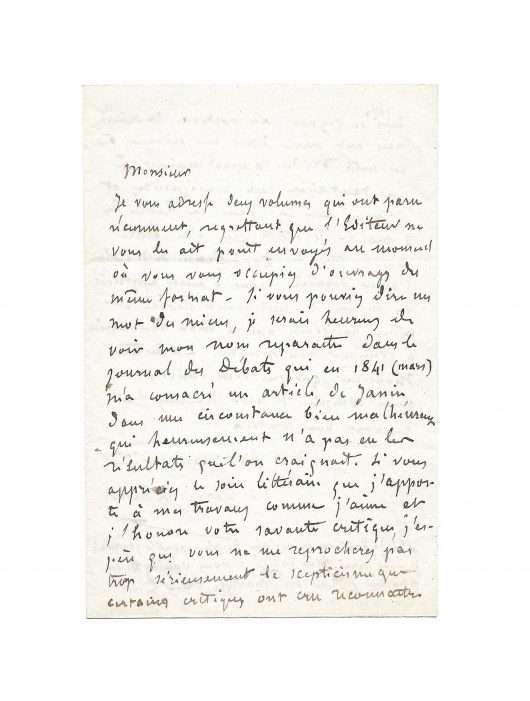 Monsieur
Je vous adresse deux volumes qui ont paru
récemment, regrettant que l'Editeur ne
vous les ait point envoyés au moment
où vous vous occupiez d'ouvrages du
même format - Si vous pouviez dire un
mot des miens, je serais heureux de
voir mon nom reparaître dans le
journal des Débats qui en 1841 (mars)
m'a consacré un article de Janin
dans une circonstance bien malheureuse
qui heureusement n'a pas eu les
résultats qu'il'on craignait. Si vous
appréciez le soin littéraire que j'appor-
te à mes travaux comme j'aime et
j'honore votre savante critique, j'es-
père que vous ne me reprocherez pas
trop sérieusement le scepticisme que
certains critiques ont cru reconnaître